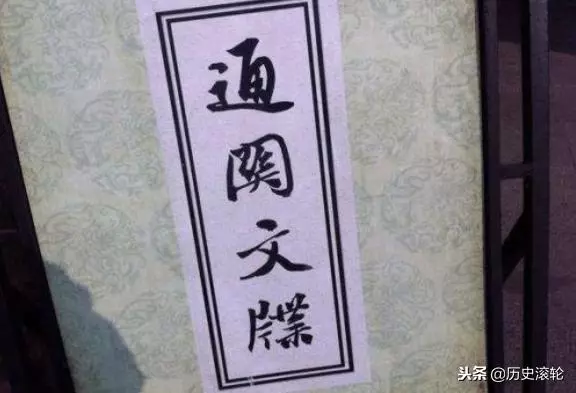 通關文牒
头条 @历史滚轮